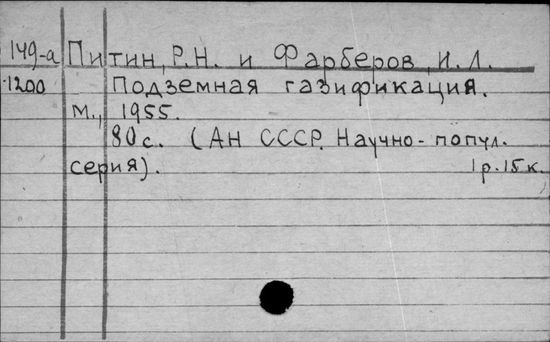 149-а Питин, Р.Н. и Фарберов, И.Л.
1200 Подземная газификация.
М., 1955.
80с. (АН СССР. Научно-попул.
серия). 1р.15к.